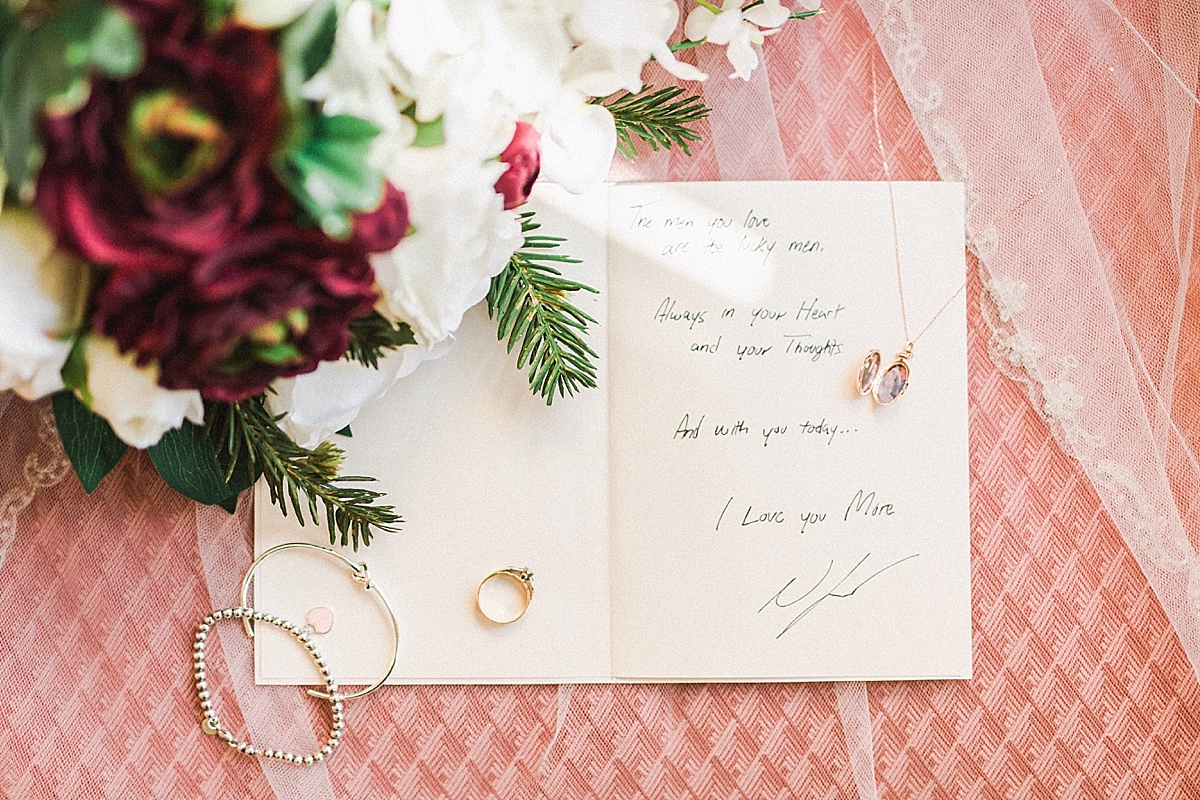 The men you love
are the lucky men.
Always in your Heart
and your Thoughts
And with you today...
I Love you More